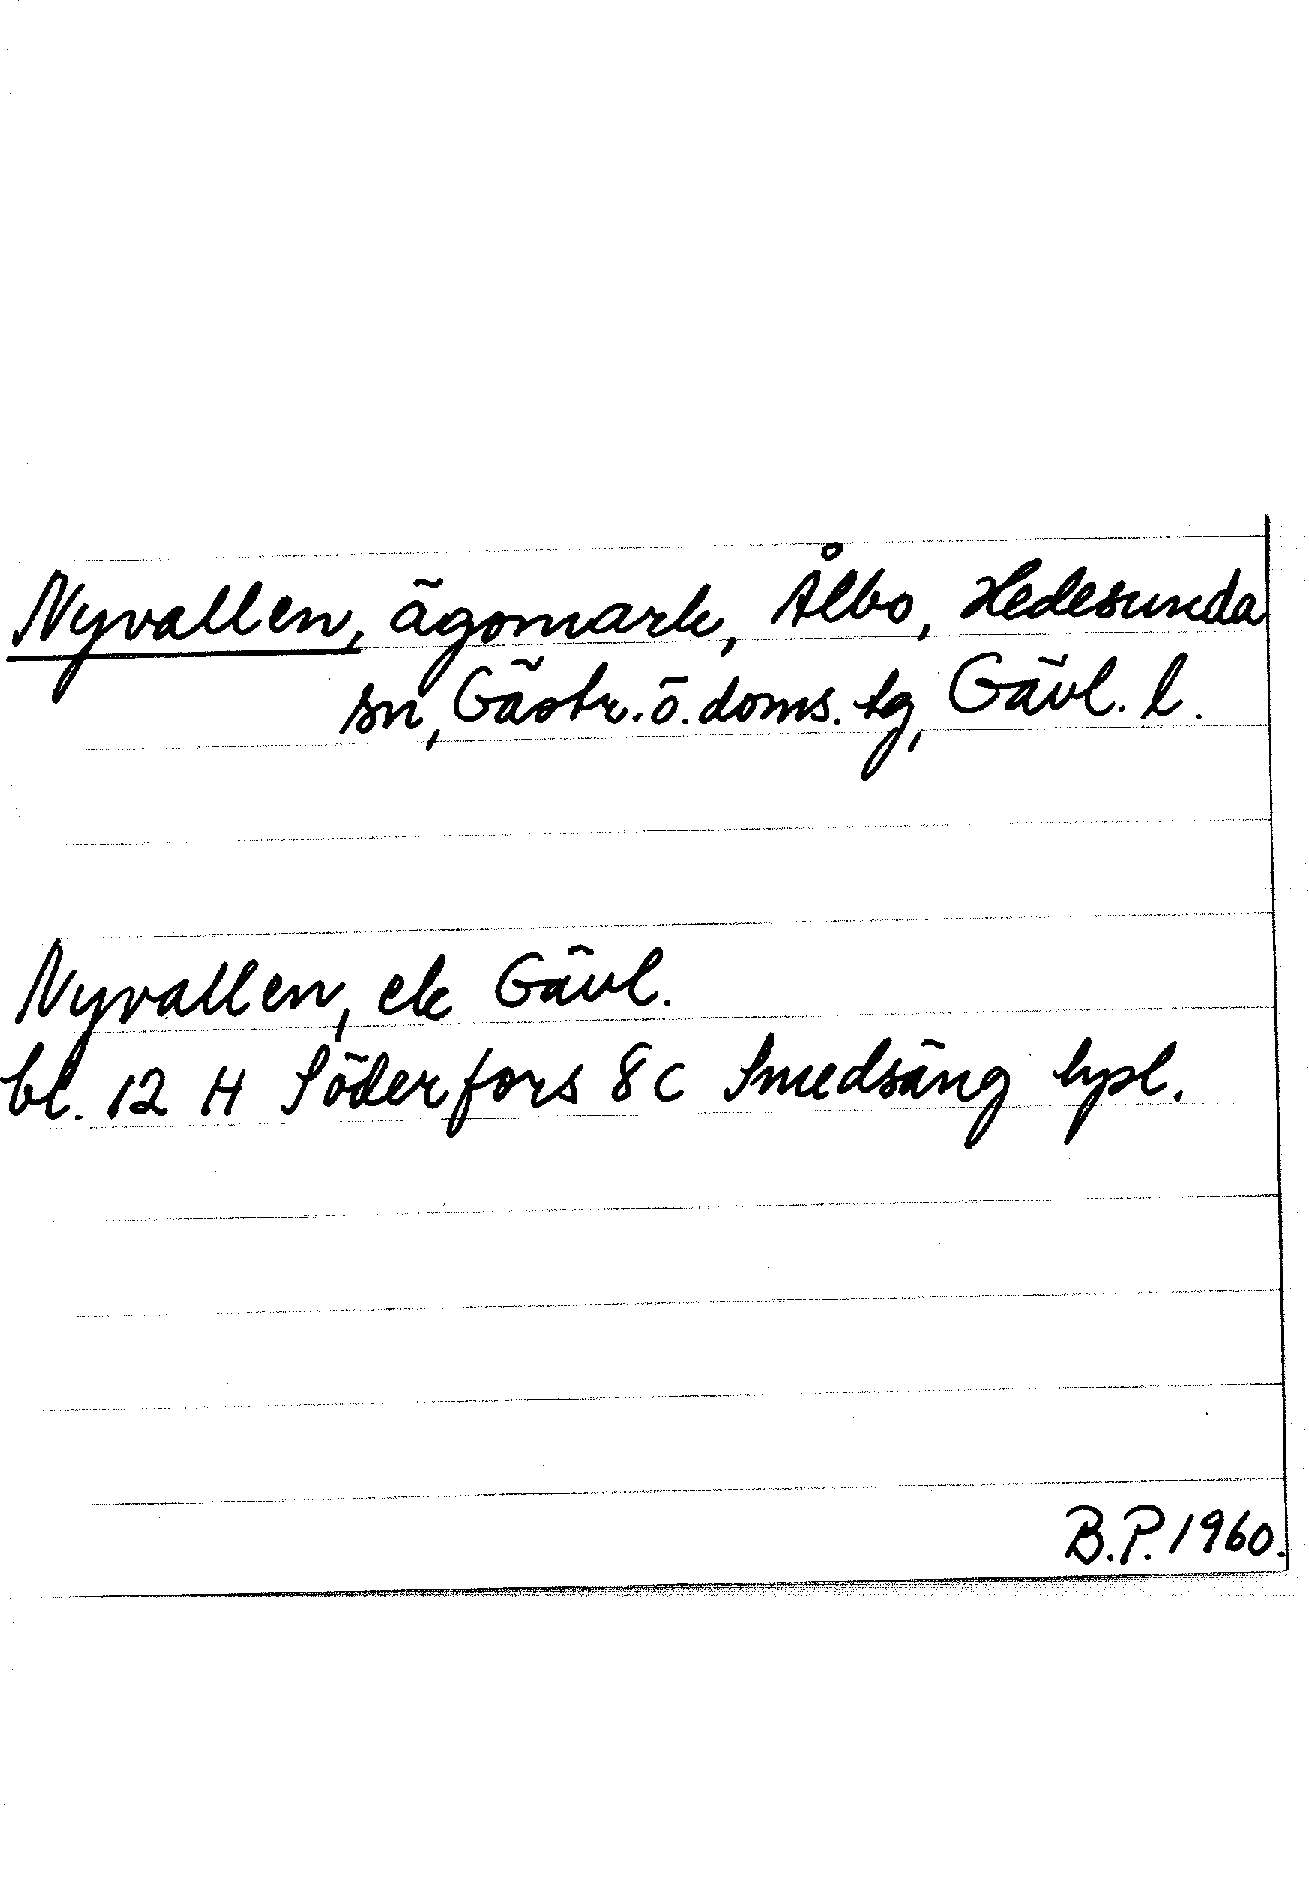 Nyvallen, ägomark, Ålbo, Hedesunda
sn, Gästr. ö. doms. tg, Gävl. l.
Nyvallen, ek Gävl.
bl. 12 H Söderfors 8 c Smedsäng hpl.
B.P. 1960.